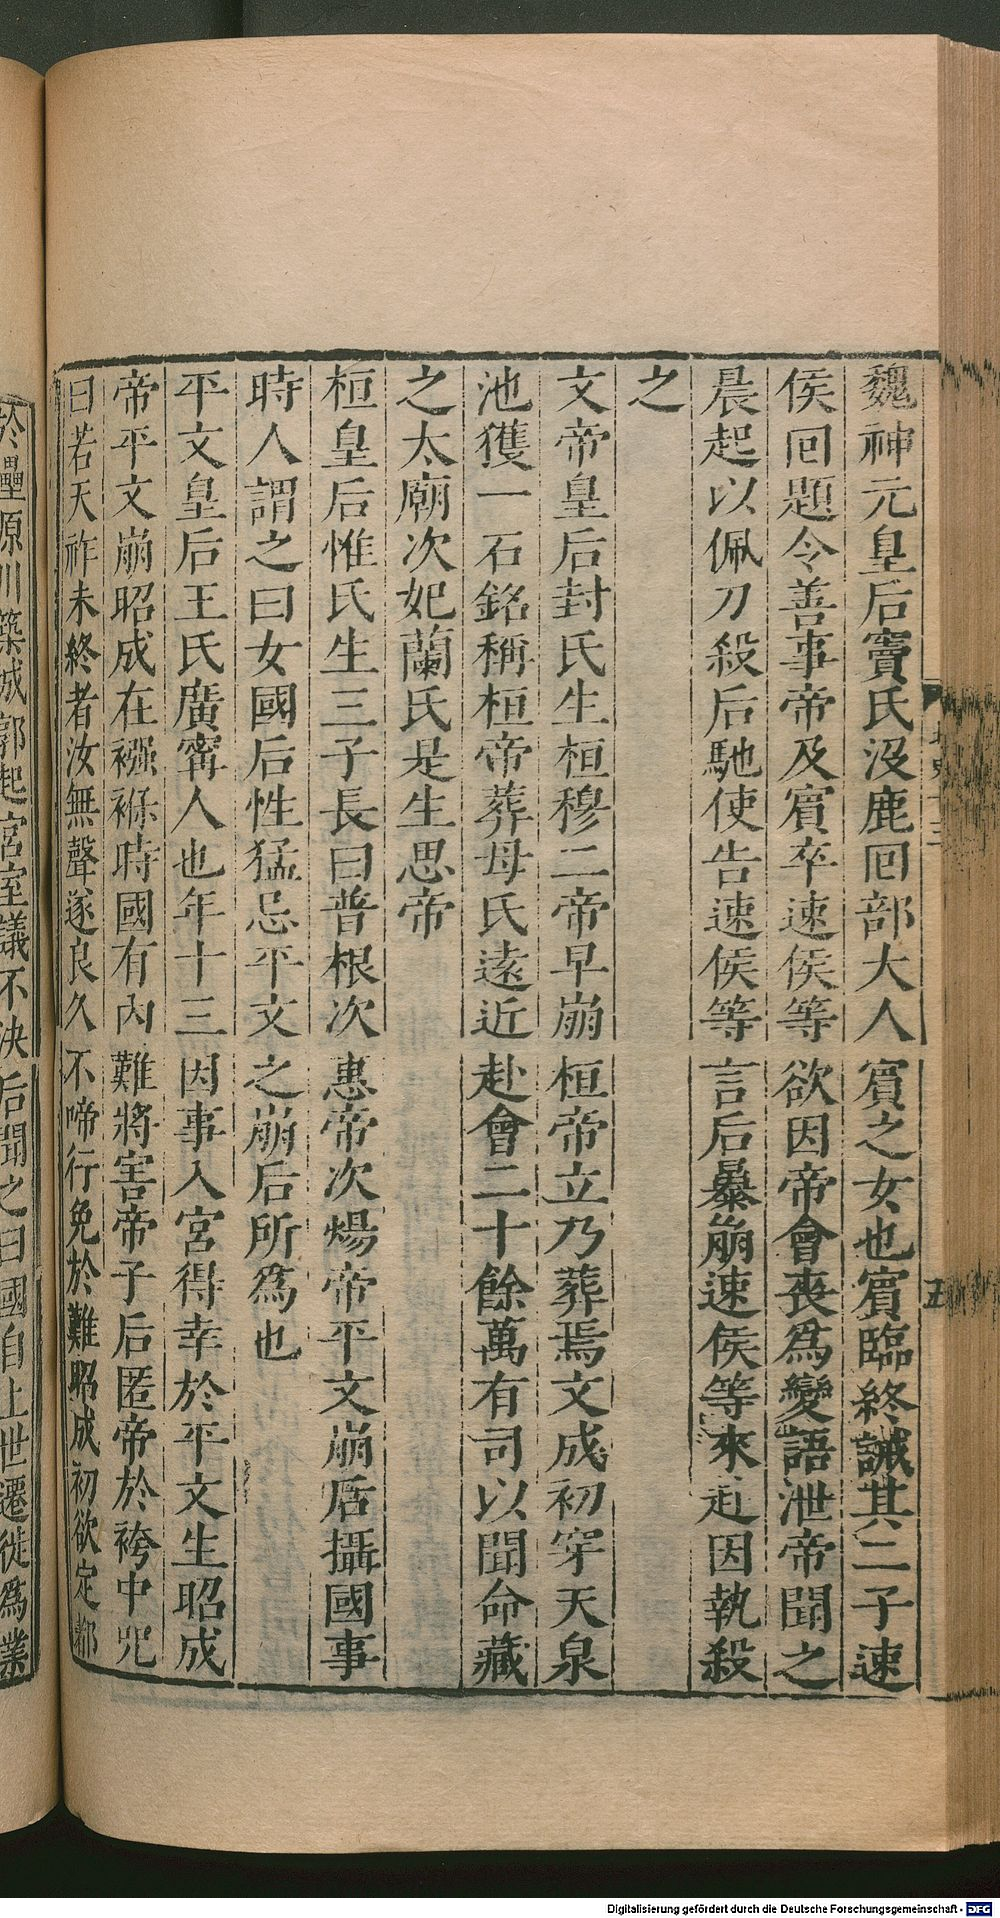 魏神元皇后竇氏沒鹿囘部大人賔之女也賔臨終誡其二子速
侯囘題令善事帝及賔卒速侯等欲因帝會喪爲變語泄帝聞之
晨起以佩刀殺后馳使告速侯等言后暴崩速侯等來赴因執殺
之
文帝皇后封氏生桓穆二帝早崩桓帝立乃葬焉文成初穿天泉
池獲一石銘稱桓帝葬母氏遠近赴會二十餘萬有司以聞命藏
之太廟次妃蘭氏是生思帝
桓皇后惟氏生三子長曰普根次惠帝次煬帝平文崩后攝國事
時人謂之曰女國后性猛忌平文之崩后所爲也
平文皇后王氏廣寗人也年十三因事入宮得幸於平文生昭成
帝平文崩昭成在襁褓時國有內難將害帝子后匿帝於袴中咒
曰若天祚未終者汝無聲遂良久不啼行免於難昭成初欲定都
於㶟原川築城郭起宮室議不決后聞之曰國自上世遷徙爲業
五
Digitalisierung gefördert durch die Deutsche Forschungsgemeinschaft - DFG